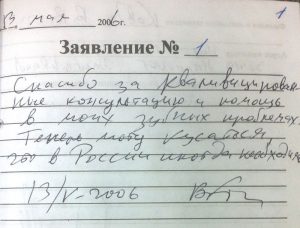 1
13 мая 2006 г.
Заявление № 1
Спасибо за квалифицирован
ные консультацию и помощь
в моих зубных проблемах.
Теперь могу кусаться,
что в России иногда необходимо
13/V-2006